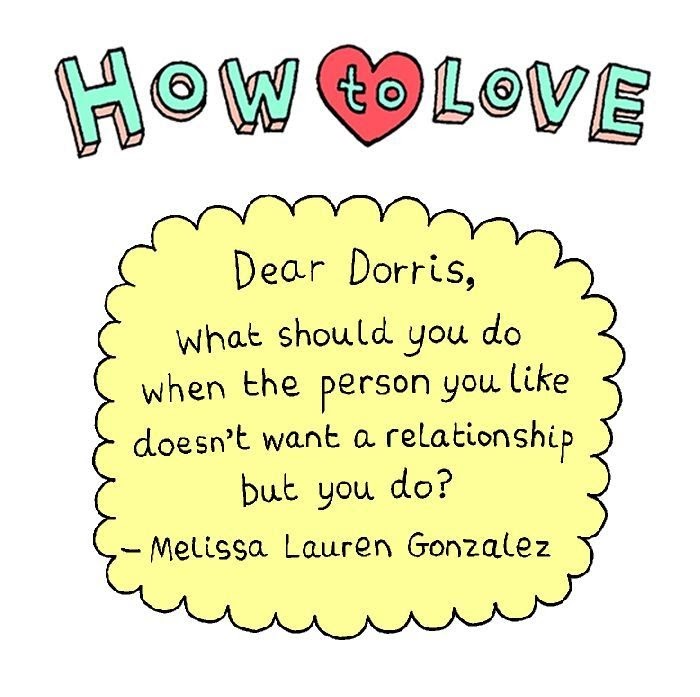 HOW to LOVE
Dear Dorris,
What should you do
when the person you like
doesn't want a relationship
but you do?
- Melissa Lauren Gonzalez